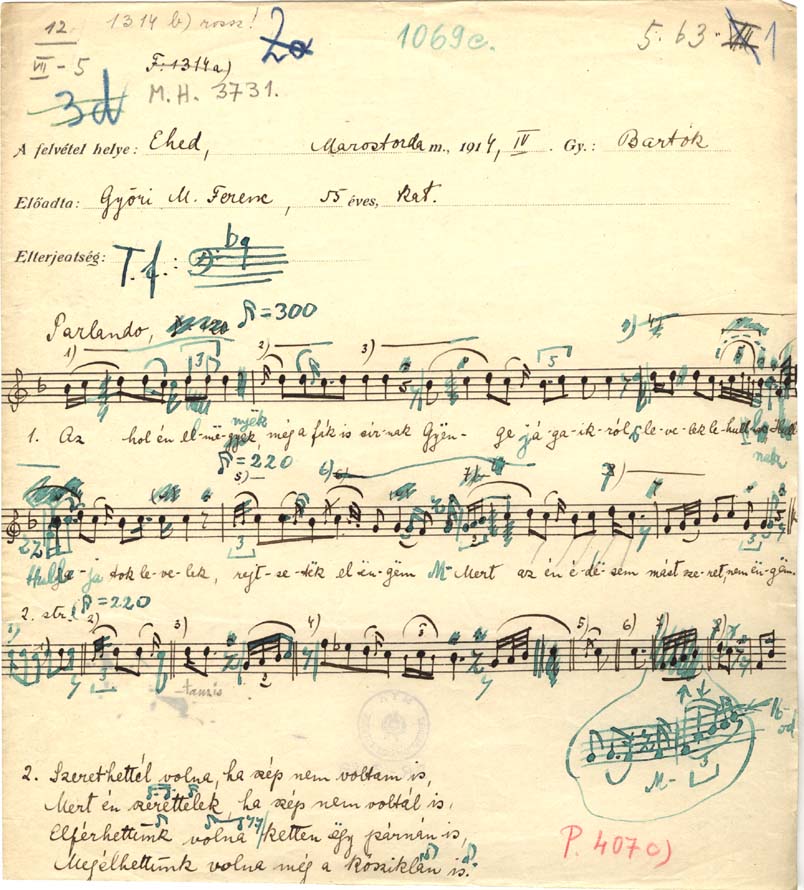 12 1314 b) rossz! 2a 1069c. 5. 63. 1
VII - 5 F. 1314a)
3d M. H. 3731.
A felvétel helye: Ehed, Marostorda m., 1914, IV. Gy.: Bartók
Előadta: Győri M. Ferenc, 55 éves, kat.
Elterjeatség: T. f.:
Parlando, =300
1) 2) 3) 3 5
1. Az hol én el-mëgyek, még a fák is sír-nak Gyën- ge já-ga-ik-ról le-ve-lek le-hull-
nyëk
nak
=220
5) 6) 8)
Hulla-ja-tok le-ve-lek, rejt-se-tëk el ën-gëm M- Mert az én é-dë-sem mást sze-ret, nem ën-gëm.
2. str. =220
1) 2) 3) 4) 5) 6) 7) 8)
M-
2. Szerethettél volna, ha szép nem voltam is,
Mert én szerettelek, ha szép nem voltál is,
Elférhettünk volna ketten ëgy párnán is,
Megélhettünk volna még a kősziklán is.
P. 407c)